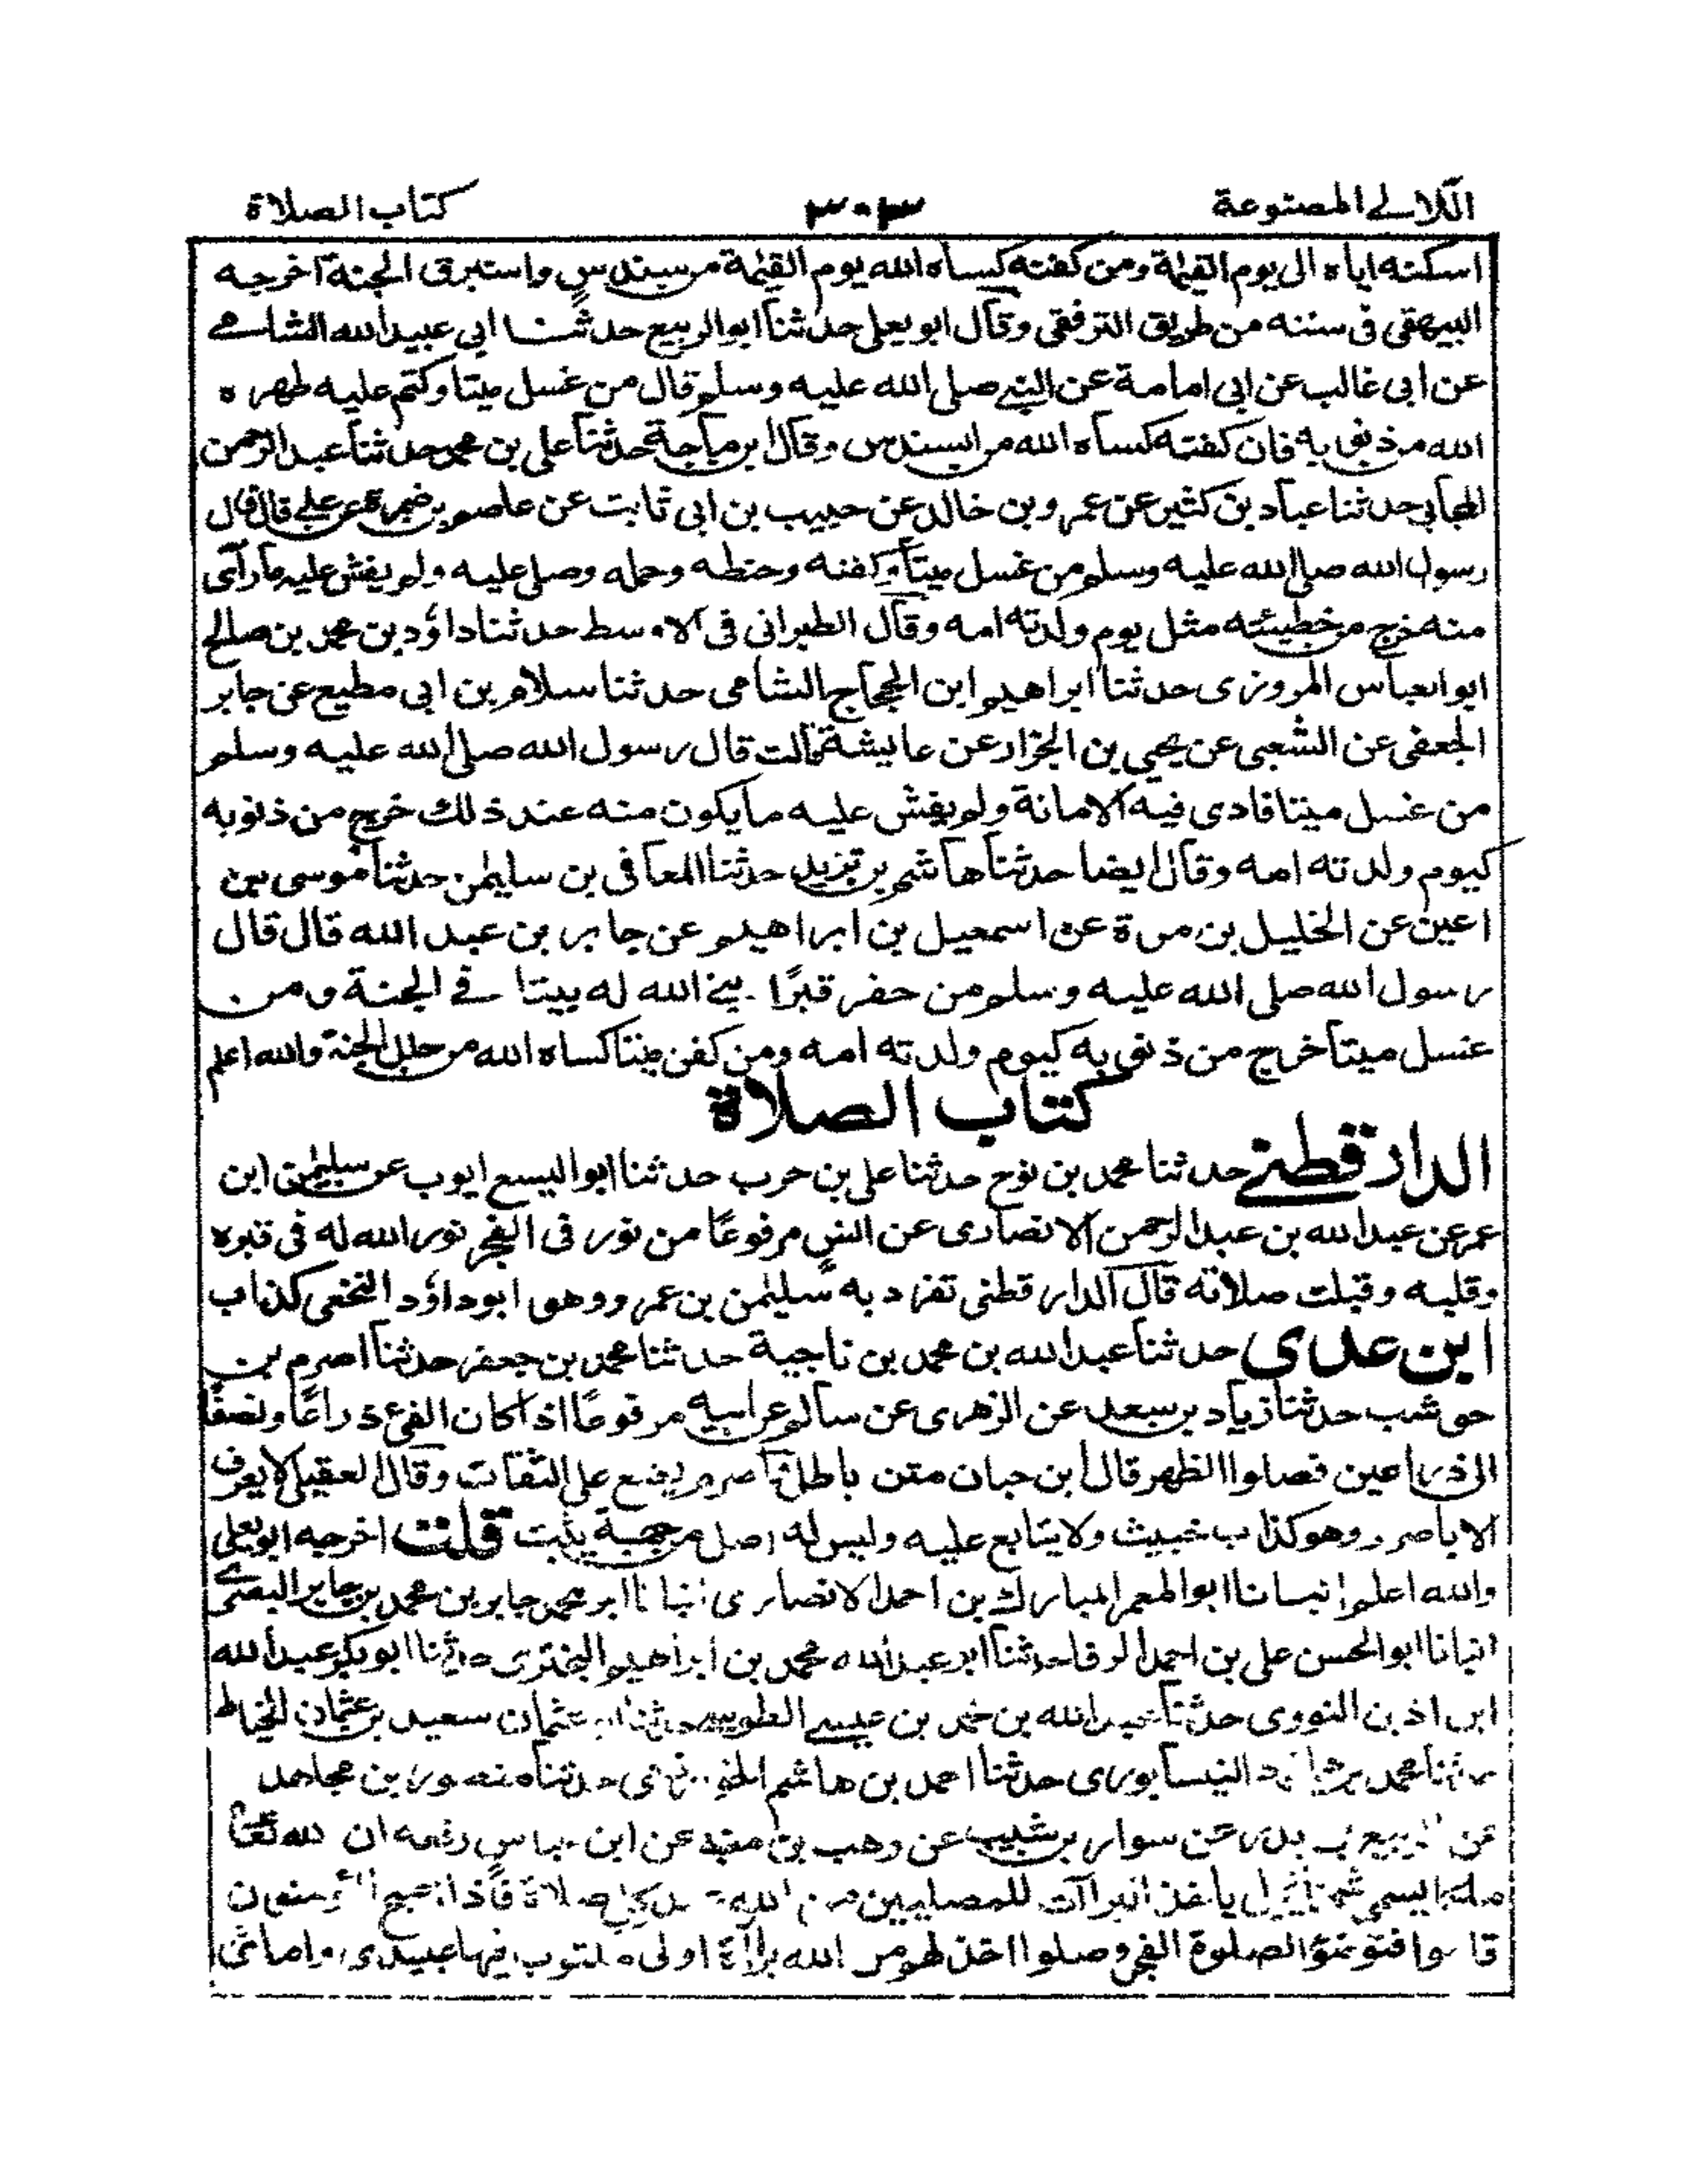 اللآلى المصنوعة
٣٠٣
كتاب الصلاة
اسكنته اياه الى يوم القيمة ومن كفنه كساه الله يوم القيمة من سندس واستبرق الجنة اخرجه
البيهقى فى سننه من طريق الترفقى وقال ابو يعلى حدثنا ابو الربيع حدثنا ابى عبيد الله الشامى
عن ابى غالب عن ابى امامة عن النبى صلى الله عليه وسلم قال من غسل ميتا وكتم عليه طهره
الله من ذنوبه فان كفنه كساه الله من السندس وقال ابن ماجة حدثنا على بن محمد حدثنا عبد الرحمن
المحاربى حدثنا عباد بن كثير عن عمرو بن خالد عن حبيب بن ابى ثابت عن عاصم بن ضمرة عن على قال قال
رسول الله صلى الله عليه وسلم من غسل ميتا وكفنه وحنطه وحمله وصلى عليه ولم يفش عليه ما رآى
منه خرج من خطيئته مثل يوم ولدته امه وقال الطبرانى فى الاوسط حدثنا داؤد بن محمد بن صالح
ابو العباس المروزى حدثنا ابراهيم ابن الحجاج الشامى حدثنا سلام بن ابى مطيع عن جابر
الجعفى عن الشعبى عن يحيى بن الجزار عن عايشة قالت قال رسول الله صلى الله عليه وسلم
من غسل ميتا فادى فيه الامانة ولم يفش عليه ما يكون منه عند ذلك خرج من ذنوبه
كيوم ولدته امه وقال ايضا حدثنا هاشم بن يزيد حدثنا المعافى بن سليمن حدثنا موسى بن
اعين عن الخليل بن مرة عن اسمعيل بن ابراهيم عن جابر بن عبد الله قال قال
رسول الله صلى الله عليه وسلم من حفر قبرًا بنى الله له بيتا فى الجنة ومن
غسل ميتا خرج من ذنوبه كيوم ولدته امه ومن كفن ميتا كساه الله من حلل الجنة والله اعلم
كتاب الصلاة
الدارقطنى حدثنا محمد بن نوح حدثنا على بن حرب حدثنا ابو اليسع ايوب عن سليمن ابن
عمر عن عبد الله بن عبد الرحمن الانصارى عن انس مرفوعًا من نور فى الفجر نور الله له فى قبره
وقلبه وقبلت صلاته قال الدارقطنى تفرد به سليمن بن عمرو وهو ابو داؤد النخعى كذاب
ابن عدى حدثنا عبد الله بن محمد بن ناجية حدثنا محمد بن جعفر حدثنا اصرم بن
حوشب حدثنا زياد بن سعد عن الزهرى عن سالم عن ابيه مرفوعًا اذا كان الفئ ذراعًا ونصفًا
الى ذراعين فصلوا الظهر قال ابن حبان متن باطل اصرم يضع على الثقات وقال العقيلى لا يعرف
الا باصرم وهو كذاب خبيث ولا يتابع عليه وليس له اصل من جهة يثبت قلت اخرجه ابو يعلى
والله اعلم انبانا ابو المعمر المبارك بن احمد الانصارى انبانا ابو محمد جابر بن محمد بن جابر البصرى
انبانا ابو الحسن على بن احمد الرفا حدثنا ابو عبد الله محمد بن ابراهيم البخترى حدثنا ابو بكر عبد الله
بن النووى حدثنا عبد الله بن محمد بن عيسى حدثنا ابو عثمان سعيد بن عثمان الخياط
حدثنا محمد بن النيسابورى حدثنا احمد بن هاشم حدثنا منصور بن مجاهد
عن الربيع بن بدر عن سوار بن شبيب عن وهب بن منبه عن ابن عباس رفعه ان لله تعالى
ملكا يسمى ياخذ البراآت للمصليين من الله عند كل صلاة فاذا اصبح المؤمنون
قاموا فتوضؤا لصلوة الفجر وصلوا اخذ لهم من الله براءة اولى مكتوب فيها عبيدى وامائى